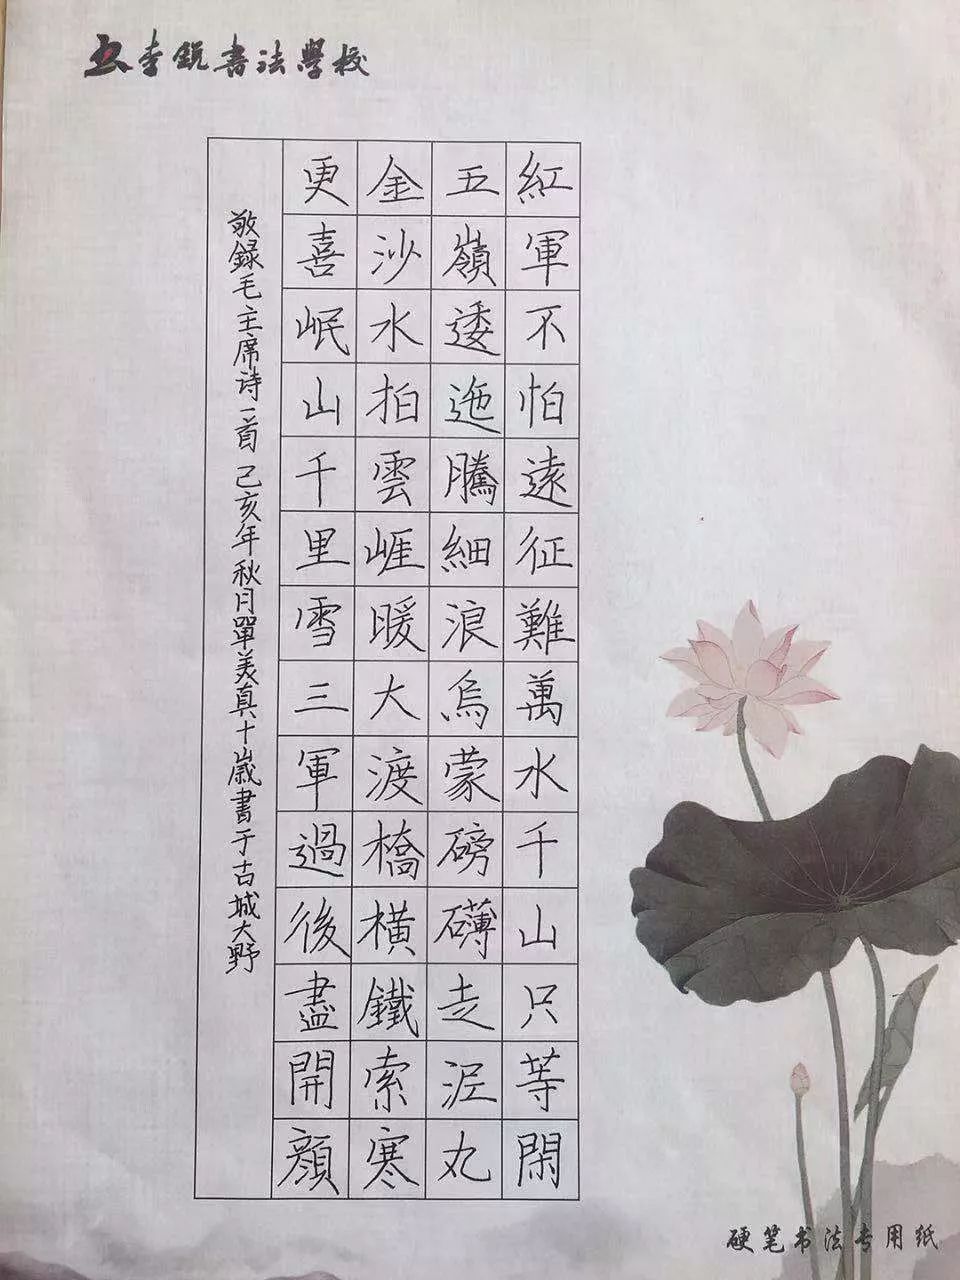 李锐書法學校
紅軍不怕遠征難萬水千山只等閑
五嶺逶迤騰細浪烏蒙磅礴走泥丸
金沙水拍雲崕暖大渡橋橫鐵索寒
更喜岷山千里雪三軍過後盡開顔
敬録毛主席诗一首己亥年秋月單美真十歲書于古城大野
硬笔书法专用纸